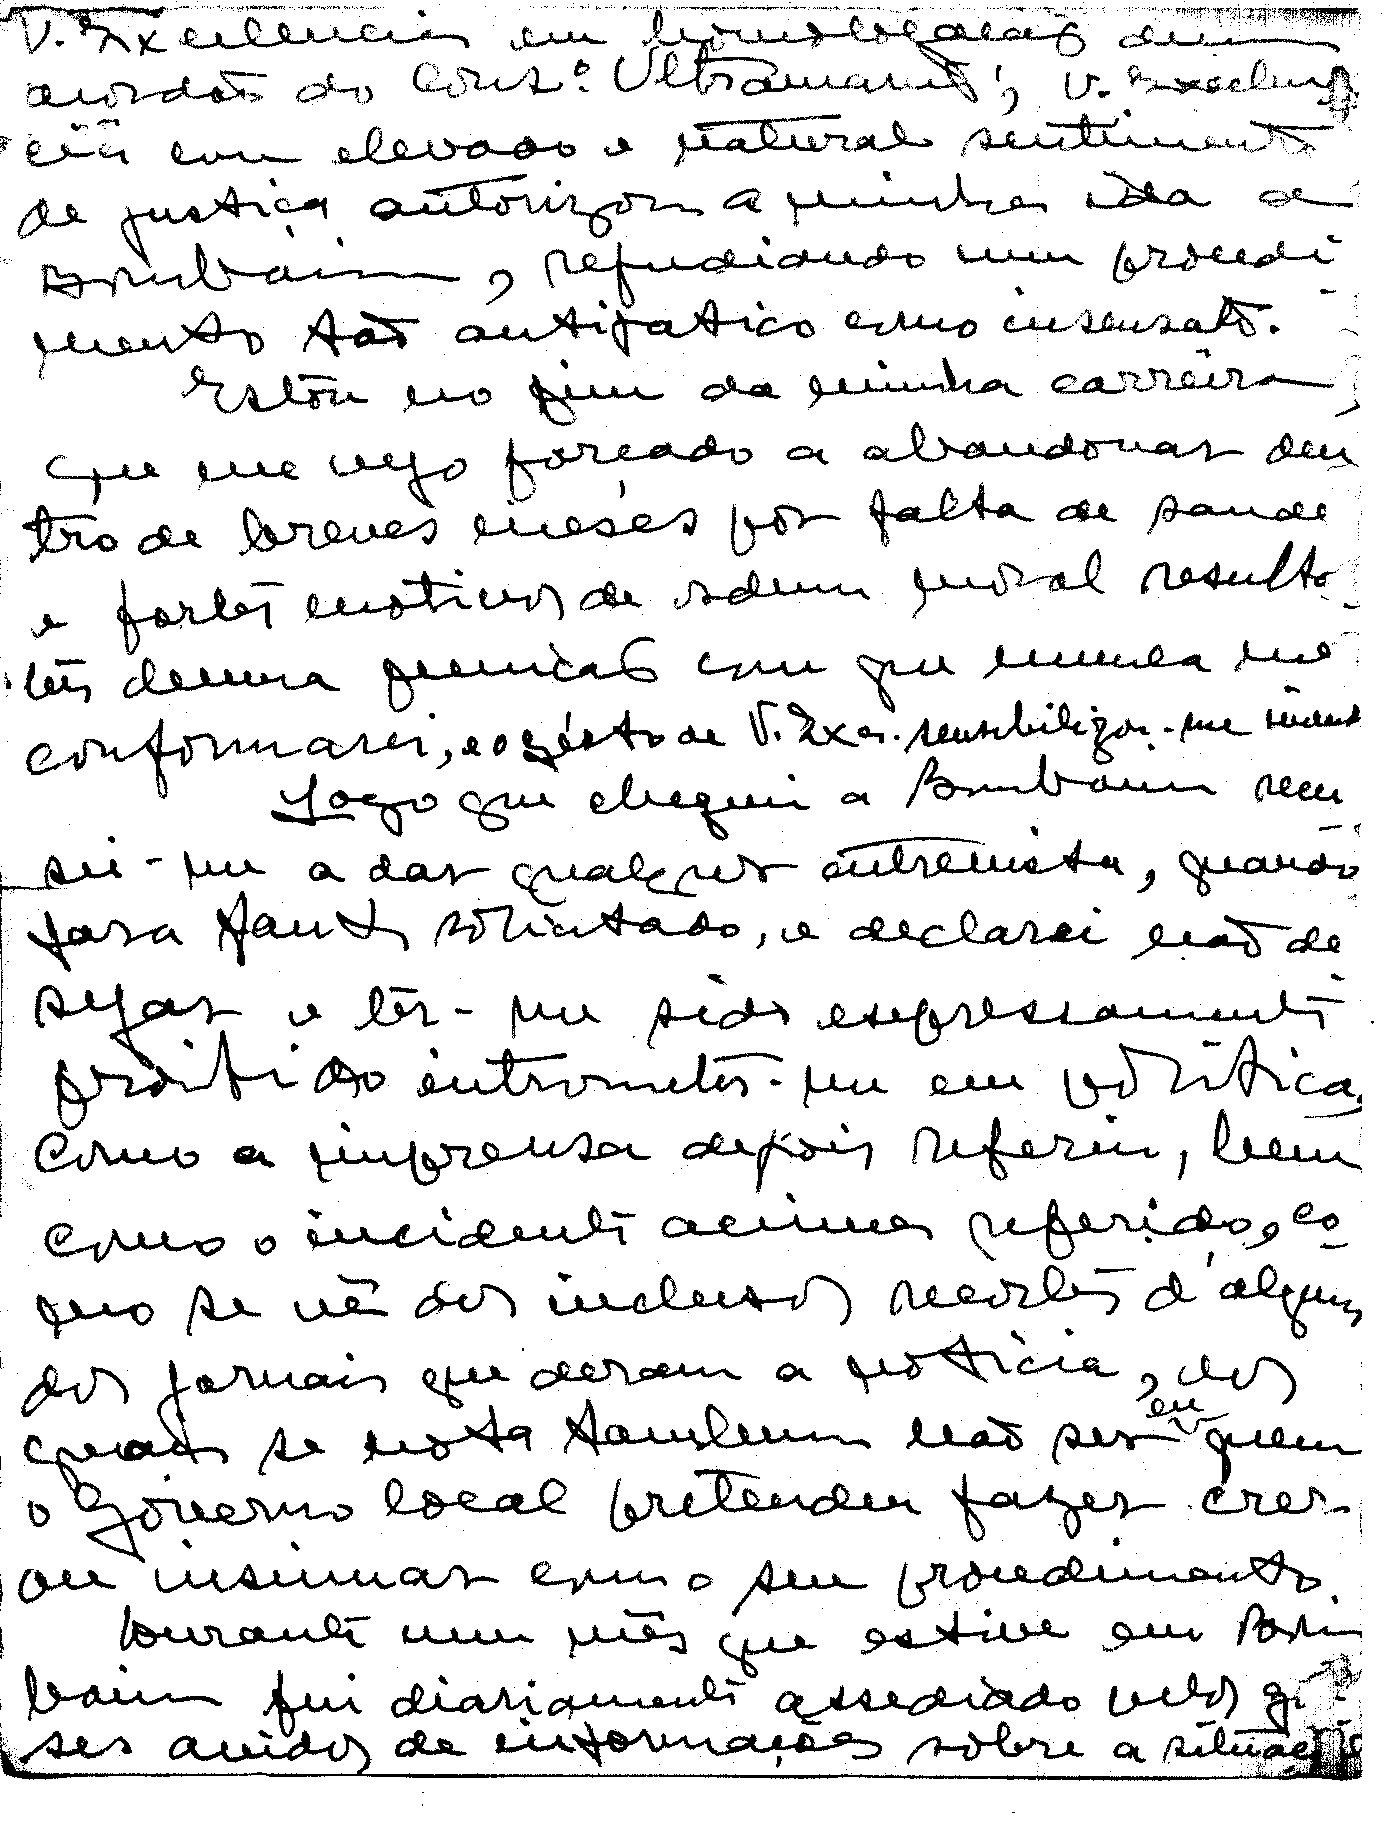 V. Excelencia em homologação dum
acordão do Cons.º Ultramarino, V. Excelen
cia com elevado e natural sentimento
de justiça autorizou a minha ida a
Bombaim, repudiando um procedi
mento tão antipatico como insensato.
Estou no fim da minha carreira,
que me vejo forçado a abandonar den
tro de breves mêses por falta de saude
e fortes motivos de ordem moral resulta
tes duma com que nunca me
conformarei, e o gésto de V. Exa. sensibilizou-me
Logo que cheguei a Bombaim recu
sei-me a dar qualquer entrevista, quando
para tanto solicitado, e declarei não de
sejar e ter-me sido expressamente
proibido intrometer-me em politica,
como a imprensa depois referiu, bem
como o incidente acima referido, co
mo se vê dos inclusos recortes d'alguns
dos jornais que deram a noticia, dos
quais se nota tambem não ser eu quem
o Governo local pretendeu fazer crer
ou insinuar com o seu procedimento.
Durante um mês que estive em Bom
baim fui diariamente assediado pelos go
ses avidos de informações sobre a situação